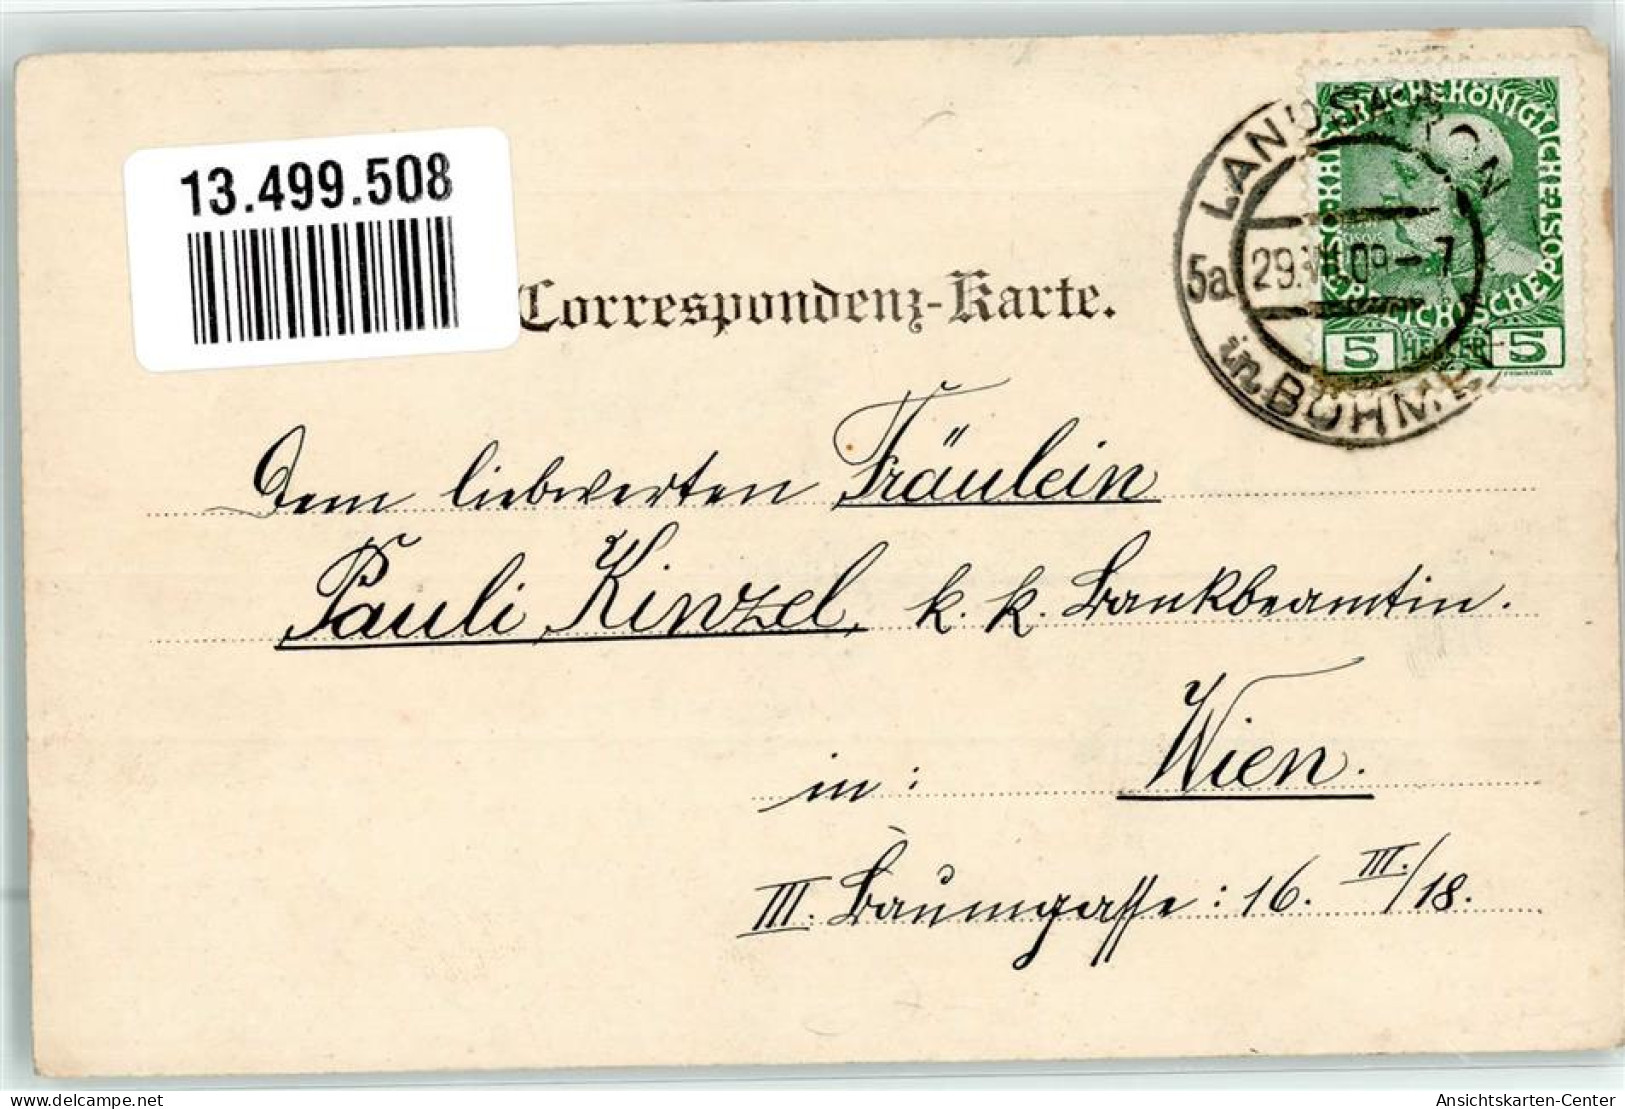 13.499.508
Correspondenz-Karte.
LANDSKRON
5a
29.VII.09-7
in BÖHMEN
KAISERLICHE KÖNIGLICHE ÖSTERREICHISCHE POST
5 HELLER 5
Dem liebwerten Fräulein
Pauli Kinzel, k. k. Bankbeamtin.
in: Wien.
III. Baumgasse: 16. III./18.
delcampe.net
postkarte
Ansichtskarten-Center